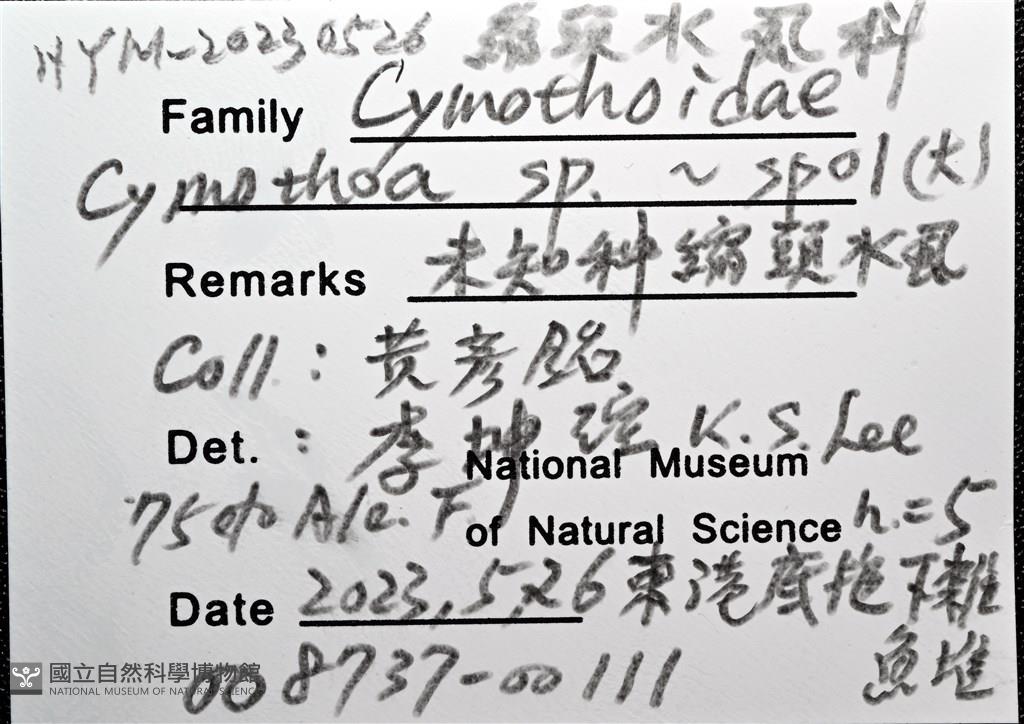 HYM-20230526 縮頭水虱科
Family Cymothoidae
Cymothoa sp. ~ sp01(大)
Remarks 未知種縮頭水虱
Coll: 黃彥銘
Det.: 李坤瑄 K.S. Lee
National Museum
75% Alc. F of Natural Science n.=5
Date 2023.5.26 東港底拖下雜
魚堆
008737-00111
國立自然科學博物館
NATIONAL MUSEUM OF NATURAL SCIENCE